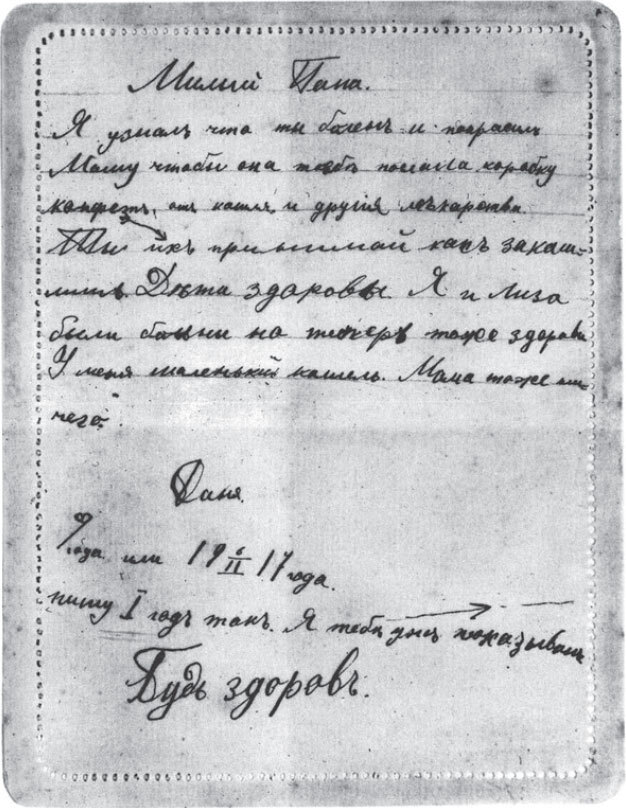 Милый Папа.
Я узналъ что ты боленъ и попрасилъ
Маму чтобы она тебѣ послала коробку
конфетъ, отъ кашля и другія лѣкарства.
Ты ихъ принимай какъ закаш-
лишь Дѣта здоровы. Я и Лиза
были больни но теперь тоже здоровы
У меня маленькій кашель. Мама тоже ни-
чего.
Даня.
года или 19 6/II 17 года.
пишу I годъ такъ. Я тебѣ уже показывалъ
Будь здоровъ.